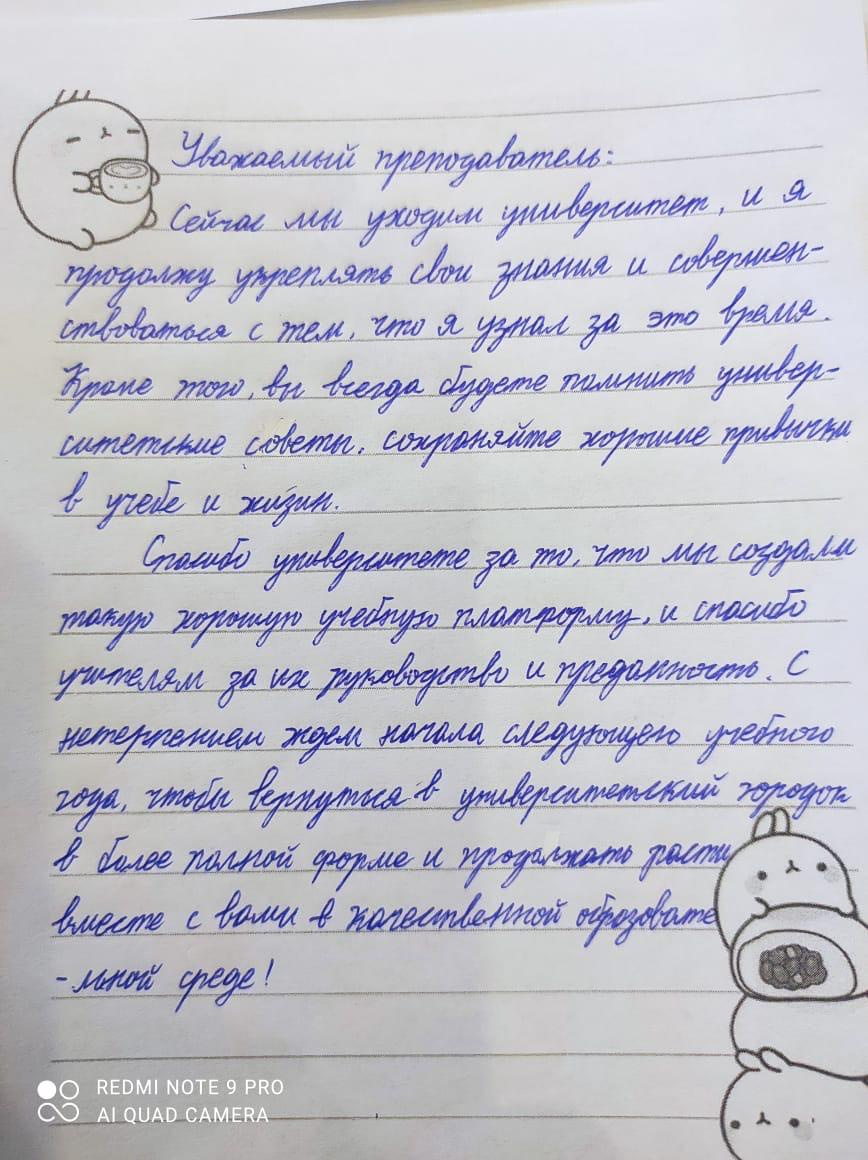 Уважаемый преподаватель:
Сейчас мы уходим университет, и я
продолжу укреплять свои знания и совершен-
ствоваться с тем, что я узнал за это время.
Кроме того, вы всегда будете помнить универ-
ситетские советы, сохраняйте хорошие привычки
в учебе и жизин.
Спасибо университете за то, что мы создали
такую хорошую учебную платформу, и спасибо
учителям за их руководство и преданность. С
нетерпением ждем начала следующего учебного
года, чтобы вернуться в университетский городок
в более полной форме и продолжать расти
вместе с вами в качественной образовате
-льной среде!
REDMI NOTE 9 PRO
AI QUAD CAMERA